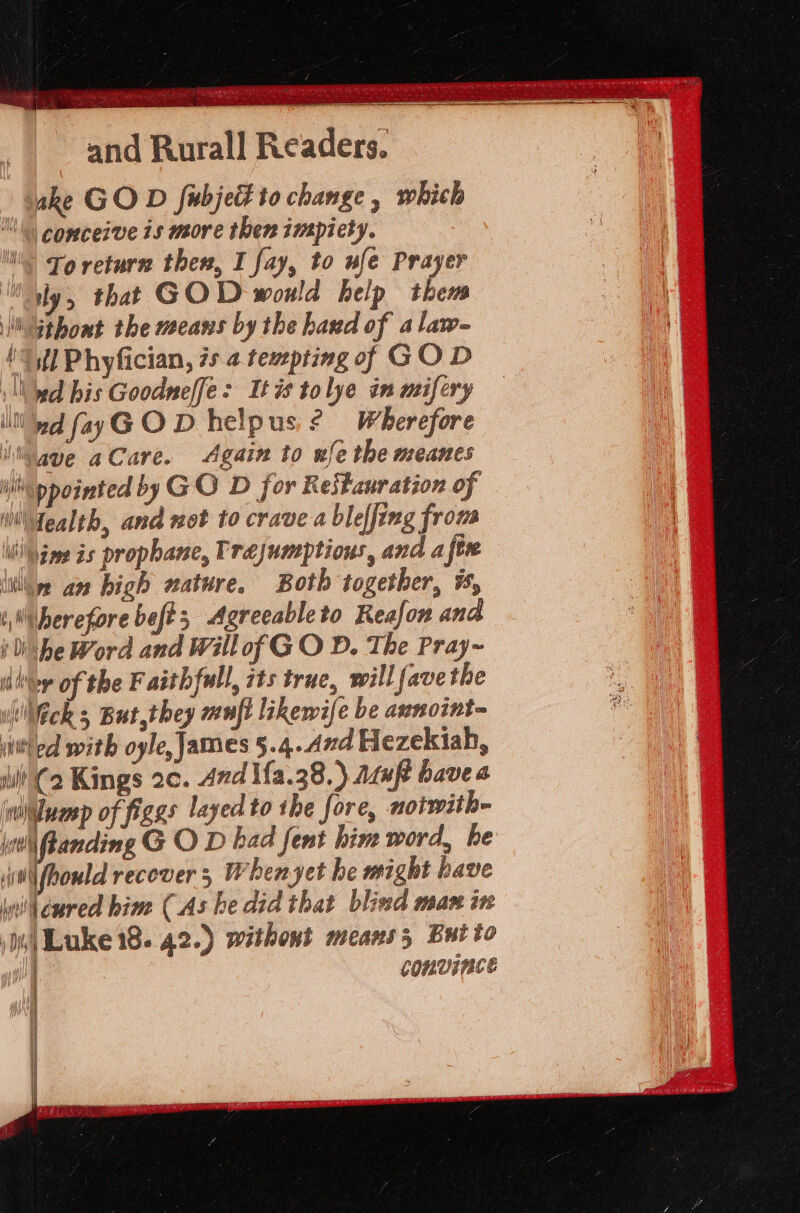 and Rurall Readers.
ake GOD ſubject to change, which
conceive is more then impiety.
To return then, I ſay, to uſe Prayer
ly, that GOD would help them
ithout the means by the hand of a law-
ll Phyſician, is a tempting of GOD
d his Goodneſſe: It is to lye in miſery
nd ſay GOD help us? Wherefore
ave a Care. Again to uſe the meanes
ppointed by GOD for Reſtauration of
ealth, and not to crave a bleſſing from
im is prophane, Præſumptious, and a ſin
an high nature. Both together, is,
herefore beſt; Agreeable to Reaſon and
he Word and Will of GOD. The Pray-
r of the Faithfull, its true, will ſave the
ck; But they muſt likewiſe be annoint-
ed with oyle, James 5.4. And Hezekiah,
(2 Kings 2c. And Iſa.38.) Muſt have a
lump of figgs layed to the ſore, notwith-
ſtanding GOD had ſent him word, he
ſhould recover; When yet he might have
cured him (As he did that blind man in
Luke 18. 42.) without means; But to
convince